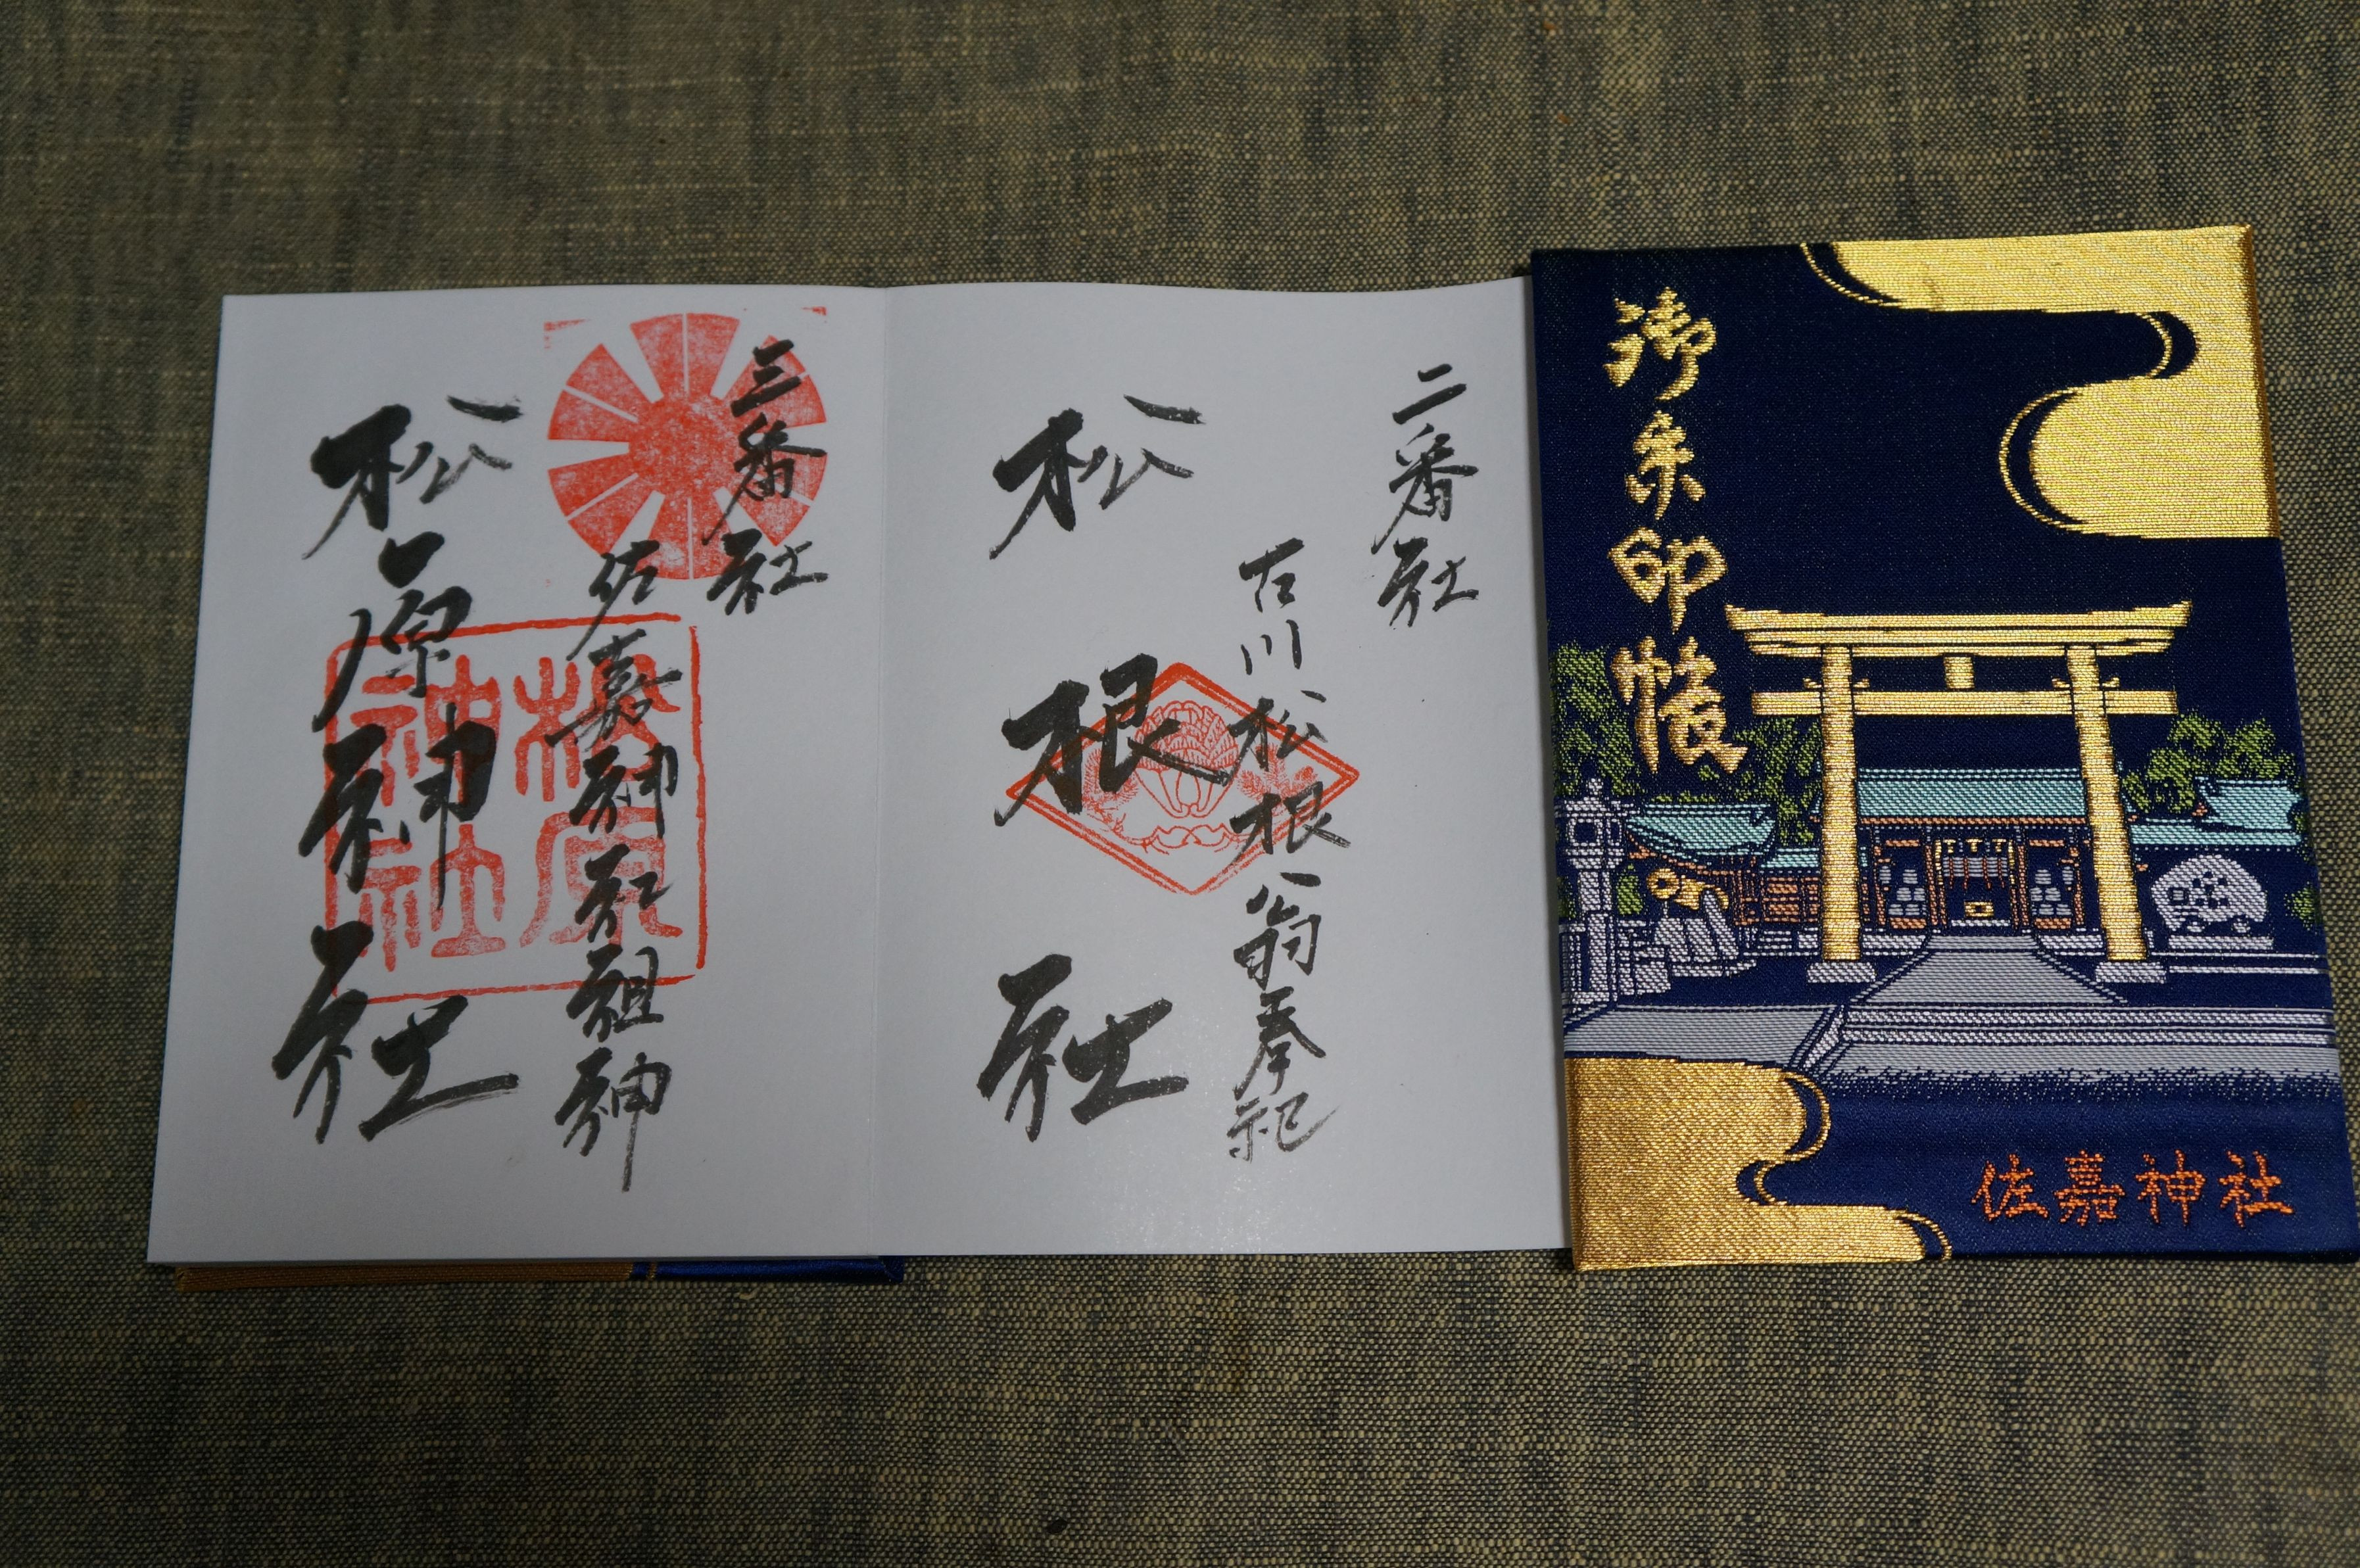 御朱印帳
佐嘉神社
二番社
古川松根公翁奉祀
松根社
三番社
佐嘉神社祖神
松原神社
松原神社